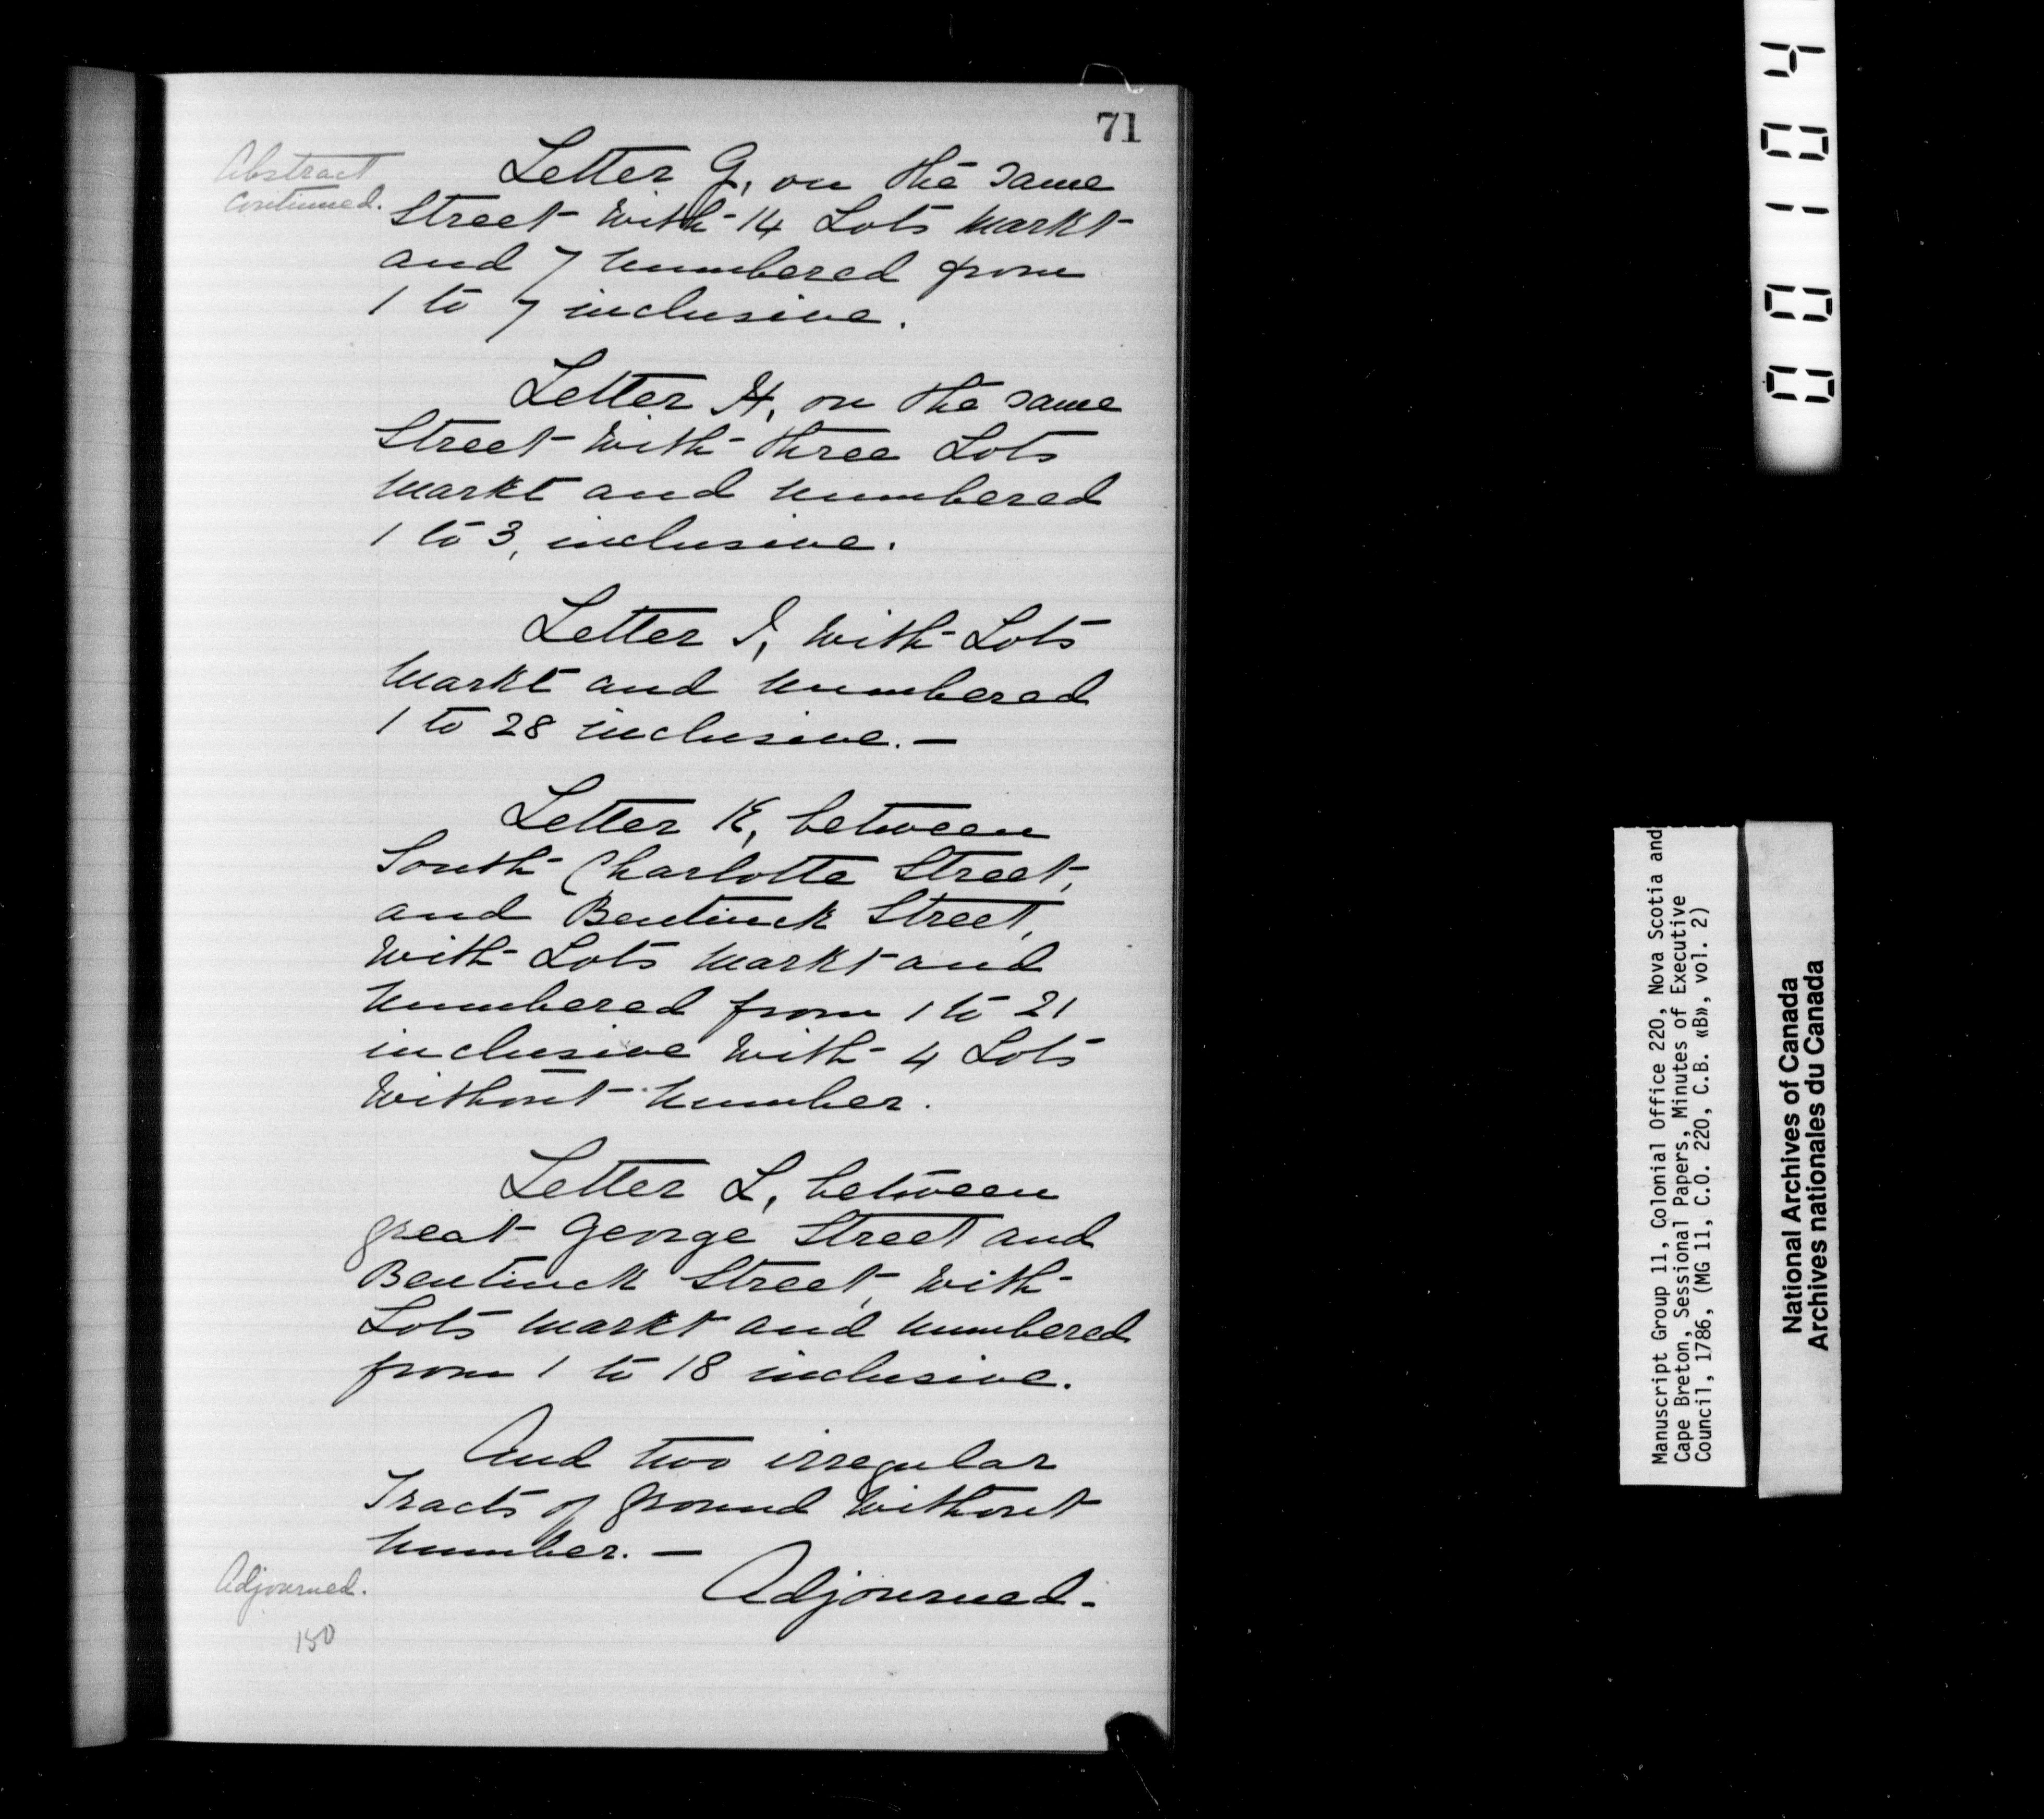 71
Abstract
continued.
Letter G, on the same
Street with 14 Lots markt
and 7 numbered from
1 to 7 inclusive.
Letter H, on the same
Street with three Lots
markt and numbered
1 to 3, inclusive.
Letter I, with Lots
markt and numbered
1 to 28 inclusive. —
Letter K, between
South Charlotte Street,
and Bentinck Street,
with Lots markt and
numbered from 1 to 21
inclusive with 4 Lots
without number.
Letter L, between
great George Street and
Bentinck Street, with
Lots markt and numbered
from 1 to 18 inclusive.
And two irregular
Tracts of ground without
number. —
Adjourned.
Adjourned.
150
00104
Manuscript Group 11, Colonial Office 220, Nova Scotia and
Cape Breton, Sessional Papers, Minutes of Executive
Council, 1786, (MG 11, C.O. 220, C.B. «B», vol. 2)
National Archives of Canada
Archives nationales du Canada